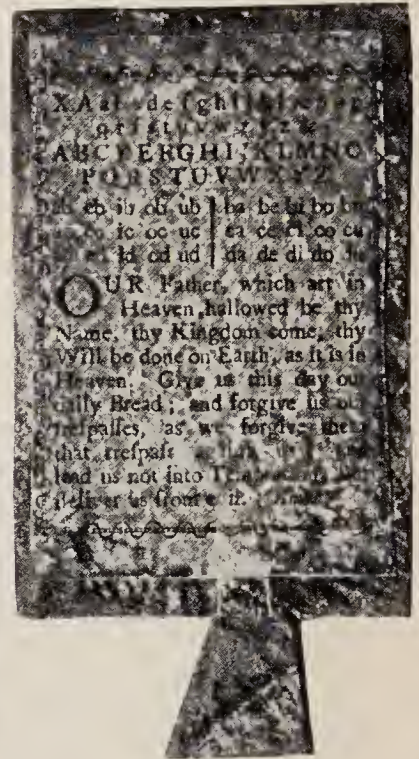 XAabcdefghi
qrstuvw
ABCDEFGHIJKLMNO
PQRSTUVWXYZ
ab eb ib ob ub ba be bi bo bu
ic oc uc ca ce ci co cu
id od ud da de di do du
OUR Father, which art in
Heaven, hallowed be thy
Name, thy Kingdom come, thy
Will be done on Earth, as it is in
Heaven. Give us this day our
daily Bread; and forgive us our
treſpaſſes, as we forgive them
that treſpaſs
lead us not into
deliver us from evil.